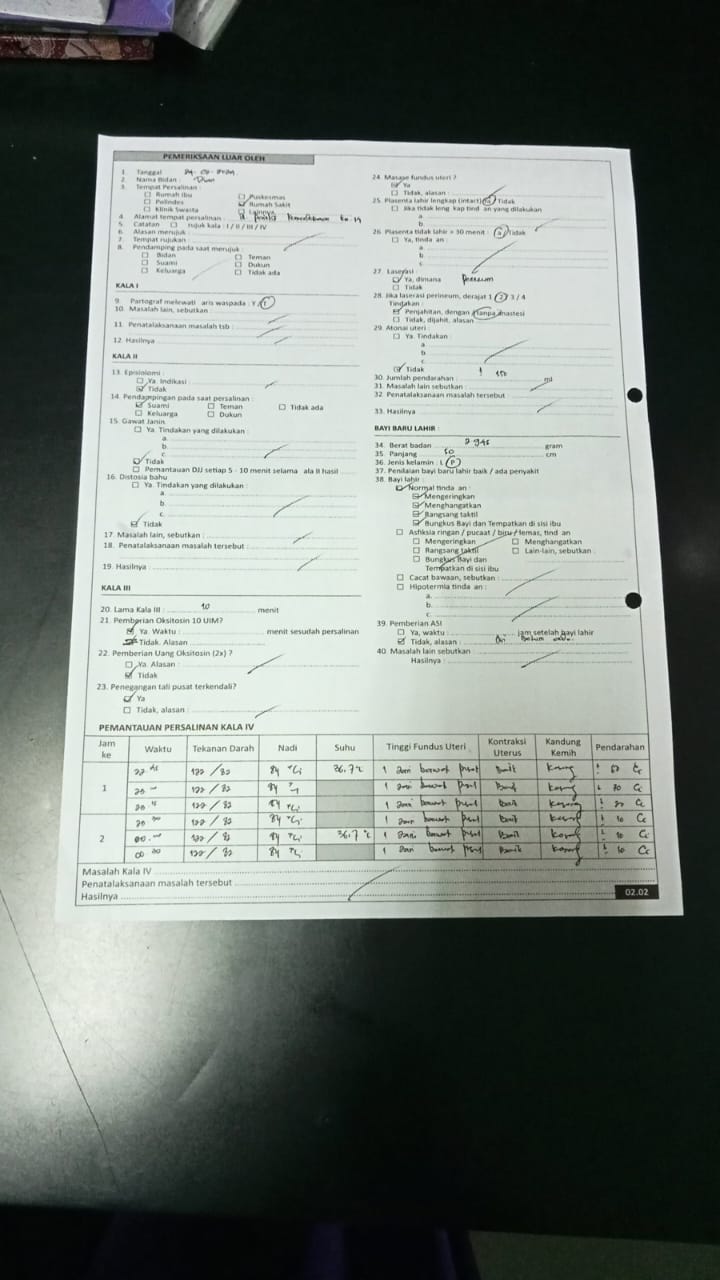 PEMERIKSAAN LUAR OLEH
1. Tanggal
2. Nama Bidan :
3. Tempat Persalinan :
Rumah Ibu Puskesmas
Polindes Rumah Sakit
Klinik Swasta Lainnya
4. Alamat tempat persalinan :
5. Catatan rujuk kala : I / II / III / IV
6. Alasan merujuk
7. Tempat rujukan
8. Pendamping pada saat merujuk :
Bidan Teman
Suami Dukun
Keluarga Tidak ada
KALA I
9. Partograf melewati aris waspada : Y / T
10. Masalah lain, sebutkan
11. Penatalaksanaan masalah tsb
12. Hasilnya
KALA II
13. Episiotomi :
Ya. Indikasi
Tidak
14. Pendampingan pada saat persalinan :
Suami Teman Tidak ada
Keluarga Dukun
15. Gawat Janin
Ya. Tindakan yang dilakukan :
a.
b.
c.
Tidak
Pemantauan DJJ setiap 5 - 10 menit selama ala II hasil
16. Distosia bahu
Ya. Tindakan yang dilakukan :
a.
b.
c.
Tidak
17. Masalah lain, sebutkan :
18. Penatalaksanaan masalah tersebut :
19. Hasilnya
KALA III
20. Lama Kala III : 10 menit
21. Pemberian Oksitosin 10 UIM?
Ya. Waktu : menit sesudah persalinan
Tidak. Alasan
22. Pemberian Uang Oksitosin (2x) ?
Ya. Alasan :
Tidak
23. Penegangan tali pusat terkendali?
Ya
Tidak, alasan :
24. Masase fundus uteri ?
Ya
Tidak, alasan :
25. Plasenta lahir lengkap (intact) Ya / Tidak
Jika tidak leng kap tind an yang dilakukan
a.
b.
26. Plasenta tidak lahir > 30 menit : Tidak
Ya, tinda an :
a.
b.
c.
27. Laserasi :
Ya, dimana perineum
Tidak
28. Jika laserasi perineum, derajat 1 2 3 / 4
Tindakan :
Penjahitan, dengan / tanpa anastesi
Tidak, dijahit, alasan
29. Atonai uteri :
Ya. Tindakan :
a.
b.
c.
Tidak
30. Jumlah pendarahan : 150 ml
31. Masalah lain sebutkan :
32. Penatalaksanaan masalah tersebut :
33. Hasilnya
BAYI BARU LAHIR :
34. Berat badan gram
35. Panjang 50 cm
36. Jenis kelamin : L / P
37. Penilaian bayi baru lahir baik / ada penyakit
38. Bayi lahir :
Normal tinda an :
Mengeringkan
Menghangatkan
Rangsang taktil
Bungkus Bayi dan Tempatkan di sisi ibu
Asfiksia ringan / pucaat / biru / lemas, tind an
Mengeringkan Menghangatkan
Rangsang taktil Lain-lain, sebutkan :
Bungkus Bayi dan
Tempatkan di sisi ibu
Cacat bawaan, sebutkan :
Hipotermia tinda an :
a.
b.
c.
39. Pemberian ASI
Ya, waktu : jam setelah bayi lahir
Tidak, alasan :
40. Masalah lain sebutkan
Hasilnya :
PEMANTAUAN PERSALINAN KALA IV
Jam ke Waktu Tekanan Darah Nadi Suhu Tinggi Fundus Uteri Kontraksi Uterus Kandung Kemih Pendarahan
1 84 36.7 °c 1 Jari bawah pusat Baik
84 1 Jari bawah pusat Baik
84 1 Jari bawah pusat Baik
2 84 1 Jari bawah pusat Baik
84 36.7 °c 1 Jari bawah pusat Baik
84 1 Jari bawah pusat Baik
Masalah Kala IV
Penatalaksanaan masalah tersebut
Hasilnya
02.02